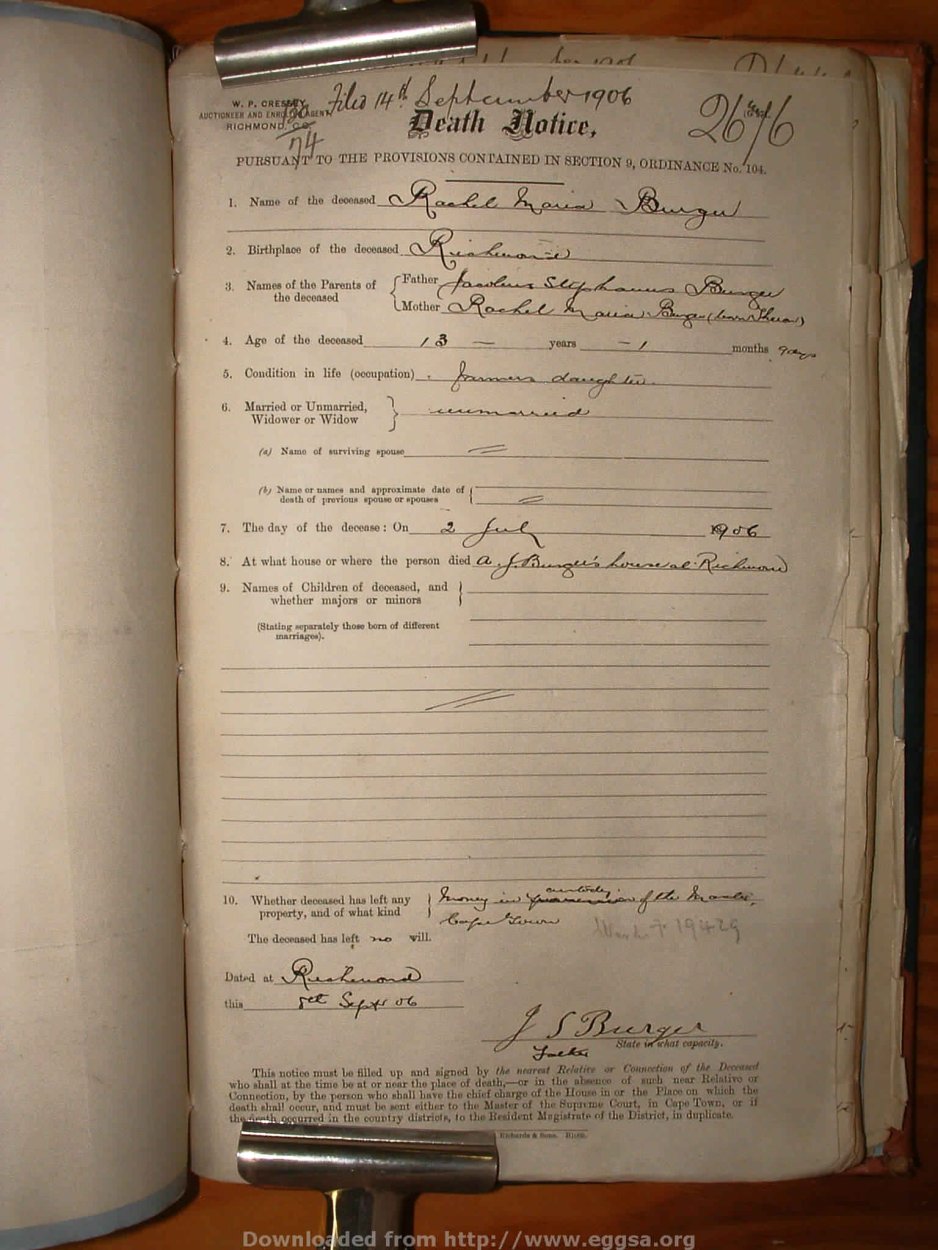 Filed 14th September 1906
W. P. CRESSEY,
AUCTIONEER AND ENROLLED AGENT,
RICHMOND, C.C.
74
Death Notice,
2676
PURSUANT TO THE PROVISIONS CONTAINED IN SECTION 9, ORDINANCE No. 104.
1. Name of the deceased Rachel Maria Burger
2. Birthplace of the deceased Richmond
3. Names of the Parents of the deceased
Father Jacobus Stephanus Burger
Mother Rachel Maria Burger (born Theron)
4. Age of the deceased 13 — years — 1 months 9 days
5. Condition in life (occupation) farmers daughter.
6. Married or Unmarried, Widower or Widow } unmarried
(a) Name of surviving spouse
(b) Name or names and approximate date of
death of previous spouse or spouses
7. The day of the decease: On 2 July 1906
8. At what house or where the person died A. J. Burger's house at Richmond
9. Names of Children of deceased, and
whether majors or minors
(Stating separately those born of different
marriages).
10. Whether deceased has left any property, and of what kind
Money in custody of the Master,
Cape Town
19429
The deceased has left no will.
Dated at Richmond
this 8th Sept 06
J S Burger
Father State in what capacity.
This notice must be filled up and signed by the nearest Relative or Connection of the Deceased
who shall at the time be at or near the place of death,—or in the absence of such near Relative or
Connection, by the person who shall have the chief charge of the House in or the Place on which the
death shall occur, and must be sent either to the Master of the Supreme Court, in Cape Town, or if
the death occurred in the country districts, to the Resident Magistrate of the District, in duplicate.
Richards & Sons.
Downloaded from http://www.eggsa.org